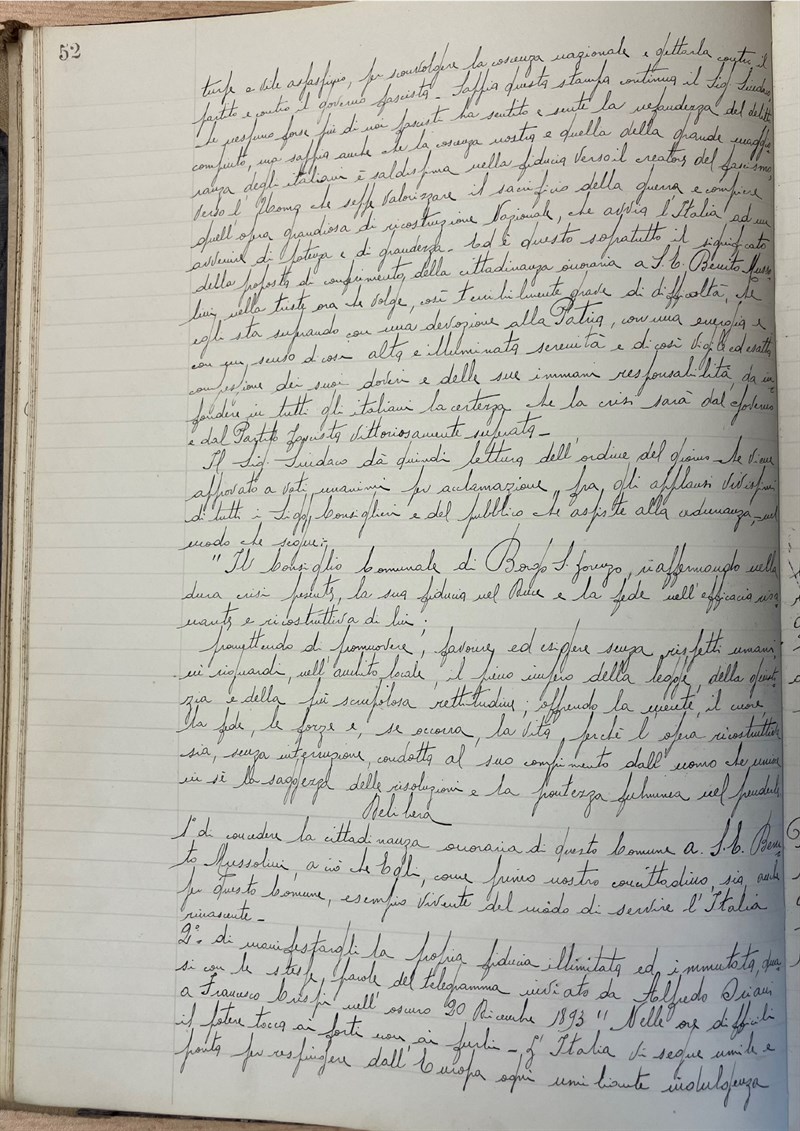 52
turpe e vile assassinio, per sconvolgere la coscenza nazionale e gettarla contro il
partito e contro il governo fascista - Sappia questa stampa continua il Sig. Sindaco
che nessuno forse più di noi fascisti ha sentito e sente la nefandezza del delitto
compiuto, ma sappia anche che la coscenza nostra e quella della grande maggio-
ranza degli italiani è saldissima nella fiducia verso il creatore del fascismo,
verso l'Uomo che seppe valorizzare il sacrificio della guerra, e compiere
quell'opera grandiosa di ricostruzione Nazionale, che avvia l'Italia ad un
avvenire di potenza e di grandezza - Ed è questo sopratutto il significato
della proposta di conferimento della cittadinanza onoraria a S. E. Benito Musso-
lini, nella triste ora che volge, così terribilmente grave di difficoltà, che
egli sta superando con una devozione alla Patria, con una energia e
con un senso di così alta e illuminata serenità e di così vigile ed esatta
comprensione dei suoi doveri e delle sue immani responsabilità, da in-
fondere in tutti gli italiani la certezza che la crisi sarà dal Governo
e dal Partito fascista vittoriosamente superata -
Il Sig. Sindaco dà quindi lettura dell'ordine del giorno che viene
approvato a voti unanimi per acclamazione, fra gli applausi vivissimi
di tutti i Sigg. Consiglieri e del pubblico che assiste alla adunanza, nel
modo che segue:
"Il Consiglio Comunale di Borgo S. Lorenzo, riaffermando nella
dura crisi presente, la sua fiducia nel Duce e la fede nell'efficacia risa-
nante e ricostruttiva di lui;
promettendo di promuovere, favorire ed esigere senza rispetti umani,
nè riguardi, nell'ambito locale, il pieno impero della legge, della giusti-
zia e della più scrupolosa rettitudine; offrendo la mente, il cuore,
la fede, le forze e, se occorra, la vita, perchè l'opera ricostruttiva
sia, senza interruzione, condotta al suo compimento dall'uomo che unisce
in sè la saggezza delle risoluzioni e la prontezza fulminea nel prenderle
Delibera
1° di concedere la cittadinanza onoraria di questo Comune a S. E. Beni-
to Mussolini, a ciò che Egli, come primo nostro concittadino, sia, anche
per questo Comune, esempio vivente del modo di servire l'Italia
rinascente -
2°. di manifestargli la propria fiducia illimitata ed immutata, qua-
si con le stesse parole del telegramma inviato da Alfredo Oriani
a Francesco Crispi nell'oscuro 20 Dicembre 1893 "Nelle ore difficili
il potere tocca ai forti non ai furbi - L'Italia vi segue umile e
pronta per respingere dall'Europa ogni umiliante indulgenza